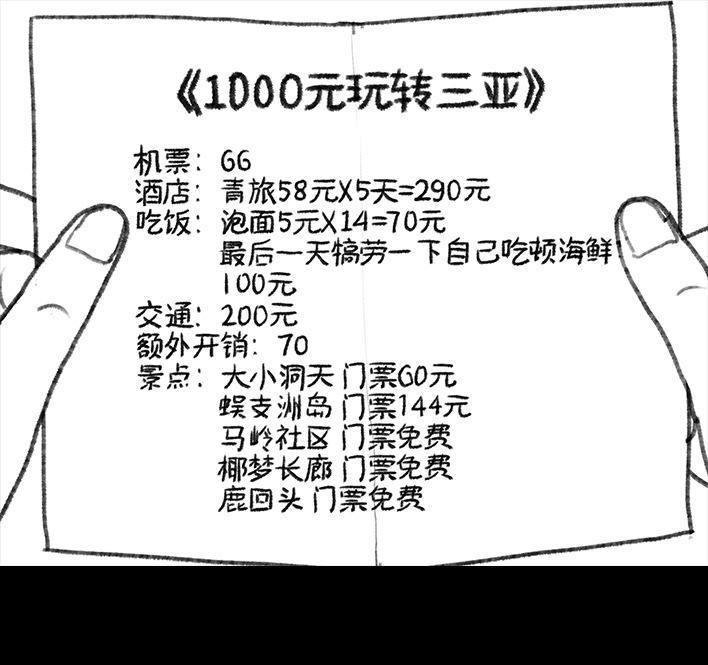 《1000元玩转三亚》
机票：66
酒店：青旅58元X5天=290元
吃饭：泡面5元X14=70元
最后一天犒劳一下自己吃顿海鲜
100元
交通：200元
额外开销：70
景点：大小洞天 门票60元
蜈支洲岛 门票144元
马岭社区 门票免费
椰梦长廊 门票免费
鹿回头 门票免费